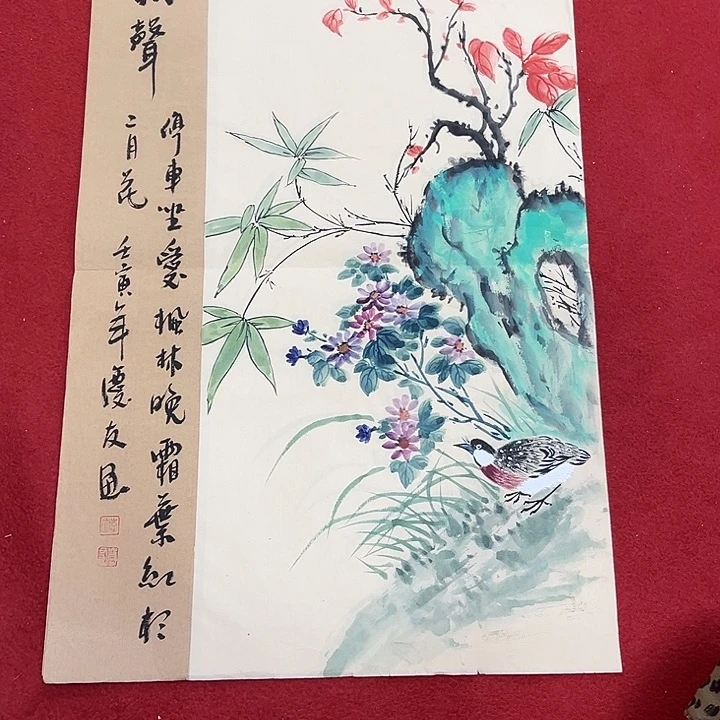 聲
停車坐愛楓林晚霜葉紅於
二月花 壬寅年 友画